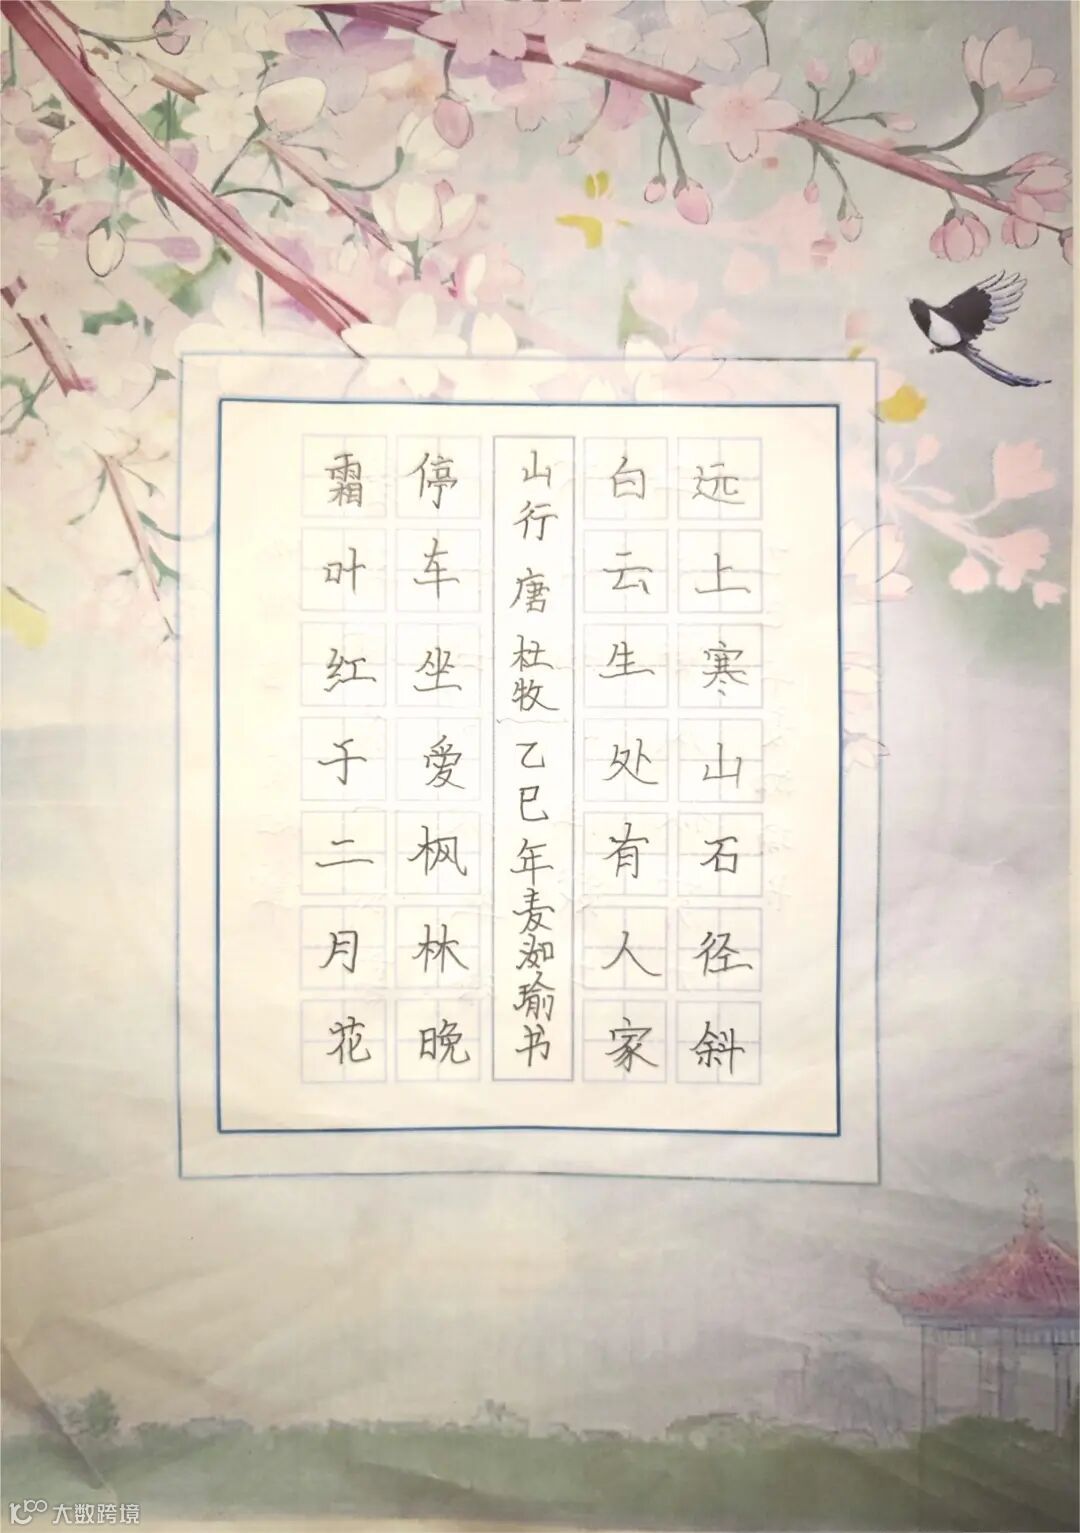 远上寒山石径斜
白云生处有人家
山行 唐 杜牧 乙巳年麦瑜书
停车坐爱枫林晚
霜叶红于二月花
大数跨境